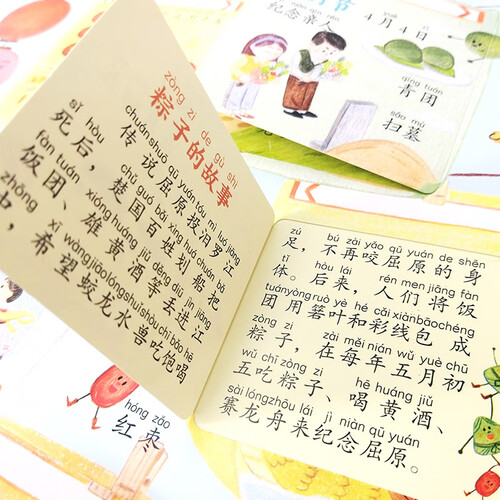 节
jǐ niàn qīn rén
纪念亲人
yuè rì
4月4日
qīng tuán
青团
sǎo mù
扫墓
zòng zi de gù shi
粽子的故事
chuán shuō qū yuán tóu mì luó jiāng
传说屈原投汨罗江
sǐ hòu chǔ guó bǎi xìng huá chuán bǎ
死后，楚国百姓划船把
fàn tuán xióng huáng jiǔ děng diū jìn jiāng
饭团、雄黄酒等丢进江
zhōng xī wàng jiāo lóng shuǐ shòu chī bǎo hē
中，希望蛟龙水兽吃饱喝
zú bú zài yǎo qū yuán de shēn
足，不再咬屈原的身
tǐ hòu lái rén men jiāng fàn
体。后来，人们将饭
tuán yòng ruò yè hé cǎi xiàn bāo chéng
团用箬叶和彩线包成
zòng zi zài měi nián wǔ yuè chū
粽子，在每年五月初
wǔ chī zòng zi hē huáng jiǔ
五吃粽子、喝黄酒、
sài lóng zhōu lái jì niàn qū yuán
赛龙舟来纪念屈原。
hóng zǎo
红枣